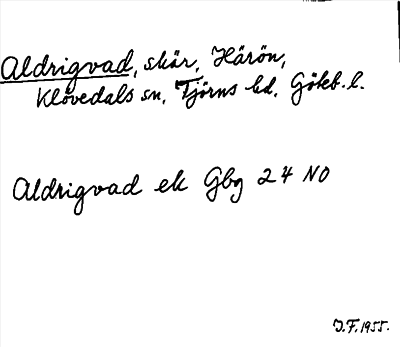 Aldrigvad, skär, Härön,
Klövedals sn, Tjörns hd, Göteb. l.
Aldrigvad ek Gbg 24 NO
J.F. 1955.